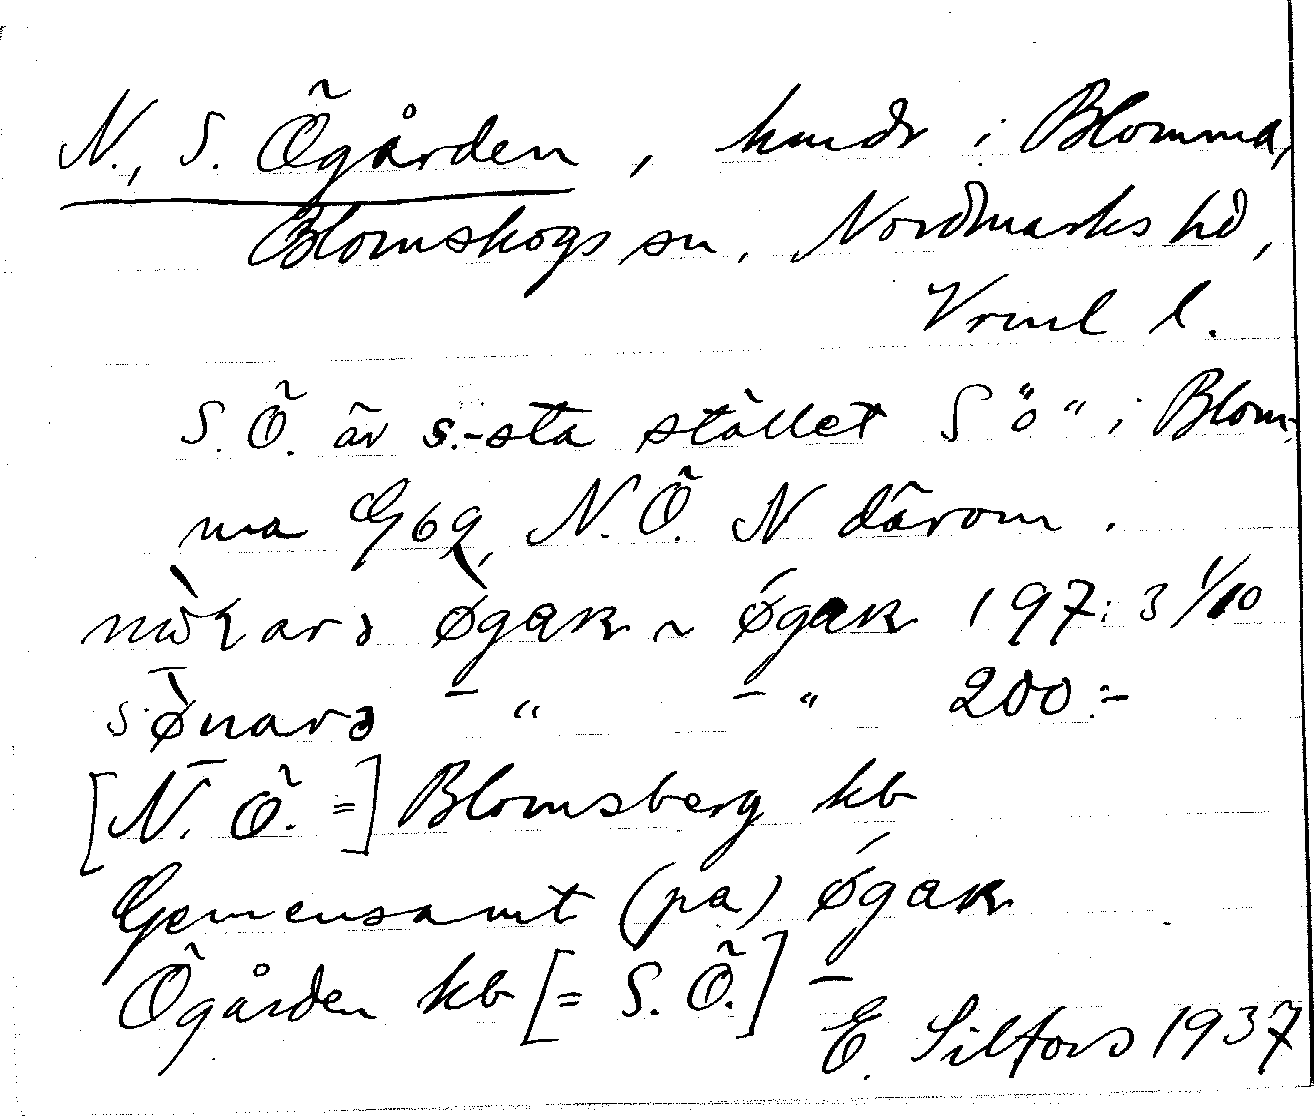 N., S. Ögården, hmdr i Blomma,
Blomskogs sn, Nordmarks hd,
Vrml l.
S. Ö. är s.-sta stället S "ö" i Blom-
ma G69, N. Ö. N därom.
øgaʀ ~ øgaʀ 197: 3 1/10
" " 200:-
[N. Ö. =] Blomsberg kb
Gemensamt (pa) øgaʀ
Ögården kb [= S. Ö.]
E. Silfors 1937